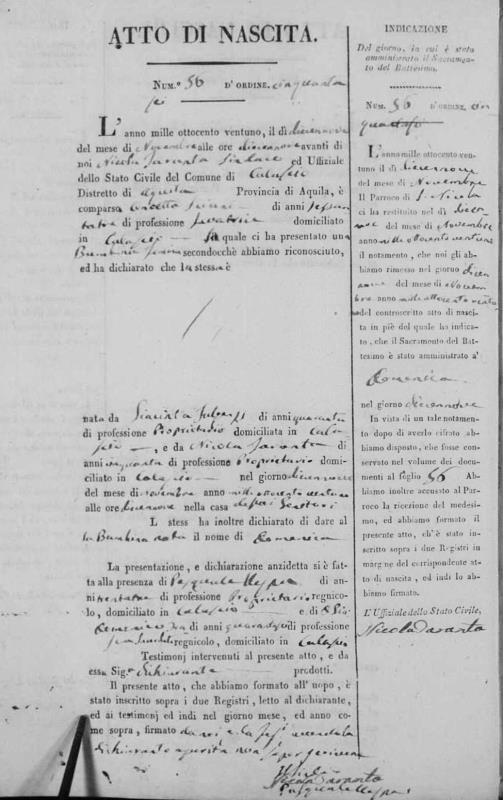 ATTO DI NASCITA.
NUM.º 56 D'ORDINE. cinquanta
sei
L'anno mille ottocento ventuno, il dì diecenove
del mese di Novembre alle ore diecenove avanti di
noi Nicola Taranta Sindaco ed Uffiziale
dello Stato Civile del Comune di Calascio
Distretto di Aquila Provincia di Aquila, è
comparsa di anni
di professione Levatrice domiciliato
in Calascio la quale ci ha presentato una
Bambina secondocchè abbiamo riconosciuto,
ed ha dichiarato che la stessa è
nata da Giacinta di anni quaranta
di professione Proprietaria domiciliata in Cala-
scio, e da Nicola Taranta di
anni cinquanta di professione Proprietario domi-
ciliato in Calascio nel giorno diecenove
del mese di Novembre anno mille ottocento ventuno
alle ore diecenove nella casa de suoi Genitori
L stess ha inoltre dichiarato di dare al
la Bambina nata il nome di Domenica
La presentazione, e dichiarazione anzidetta si è fat-
ta alla presenza di Pasquale di an-
ni di professione Proprietario regnico-
lo, domiciliato in Calascio e di
Domenico di anni di professione
regnicolo, domiciliato in Calascio
Testimonj intervenuti al presente atto, e da
essa Sig.ª Dichiarante prodotti.
Il presente atto, che abbiamo formato all' uopo, è
stato inscritto sopra i due Registri, letto al dichiarante,
ed ai testimonj ed indi nel giorno mese, ed anno co-
me sopra, firmato da noi e
Dichiarante asserito non saper scrivere
Nicola Taranta
Pasquale
INDICAZIONE
Del giorno, in cui è stato
amministrato il Sacramen-
to del Battesimo.
NUM. 56 D'ORDINE cin
quantasei
L'anno mille ottocento ven-
tuno il dì diecenove
del mese di Novembre
Il Parroco di S. Nicola
ci ha restituito nel dì diece
nove del mese di Novembre
anno mille ottocento ventuno
il notamento, che noi gli ab-
biamo rimesso nel giorno diece
nove del mese di Novem
bre anno mille ottocento ventuno
del controscritto atto di nasci-
ta in piè del quale ha indica-
to, che il Sacramento del Bat-
tesimo è stato amministrato a'
Domenica
nel giorno diecenove
In vista di un tale notamento
dopo di averlo cifrato abbi-
amo disposto, che fosse con-
servato nel volume dei docu-
menti al foglio 56 Ab-
biamo inoltre accusato al Par-
roco la ricezione del medesi-
mo, ed abbiamo formato il
presente atto, ch'è stato in-
scritto sopra i due Registri in
margine del corrispondente atto
di nascita, ed indi lo ab-
biamo firmato.
L'Uffiziale dello Stato Civile,
Nicola Taranta